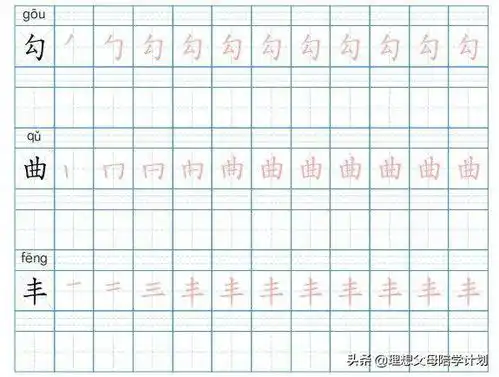 gōu
勾 丿 勹 勾 勾 勾 勾 勾 勾 勾 勾 勾
qǔ
曲 丨 冂 曲 曲 曲 曲 曲 曲 曲
fēng
丰 一 二 三 丰 丰 丰 丰 丰 丰 丰 丰
头条 @理想父母陪学计划